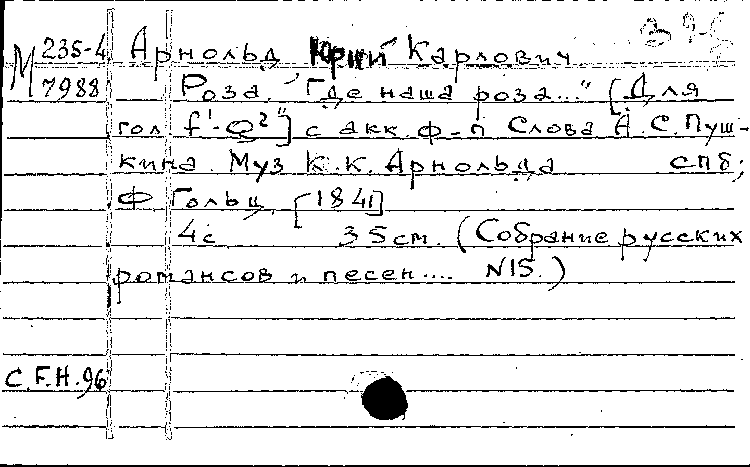 М 235-4 Арнольд Юрий Карлович
7988 Роза. "Где наша роза..." [Для
гол f'-g²"] с акк. ф-п Слова А.С.Пуш-
кина. Муз К.К. Арнольда СПб;
Ф Гольц, [1841]
4с 35см. (Собрание русских
романсов и песен.... N15.)
C.F.H.96